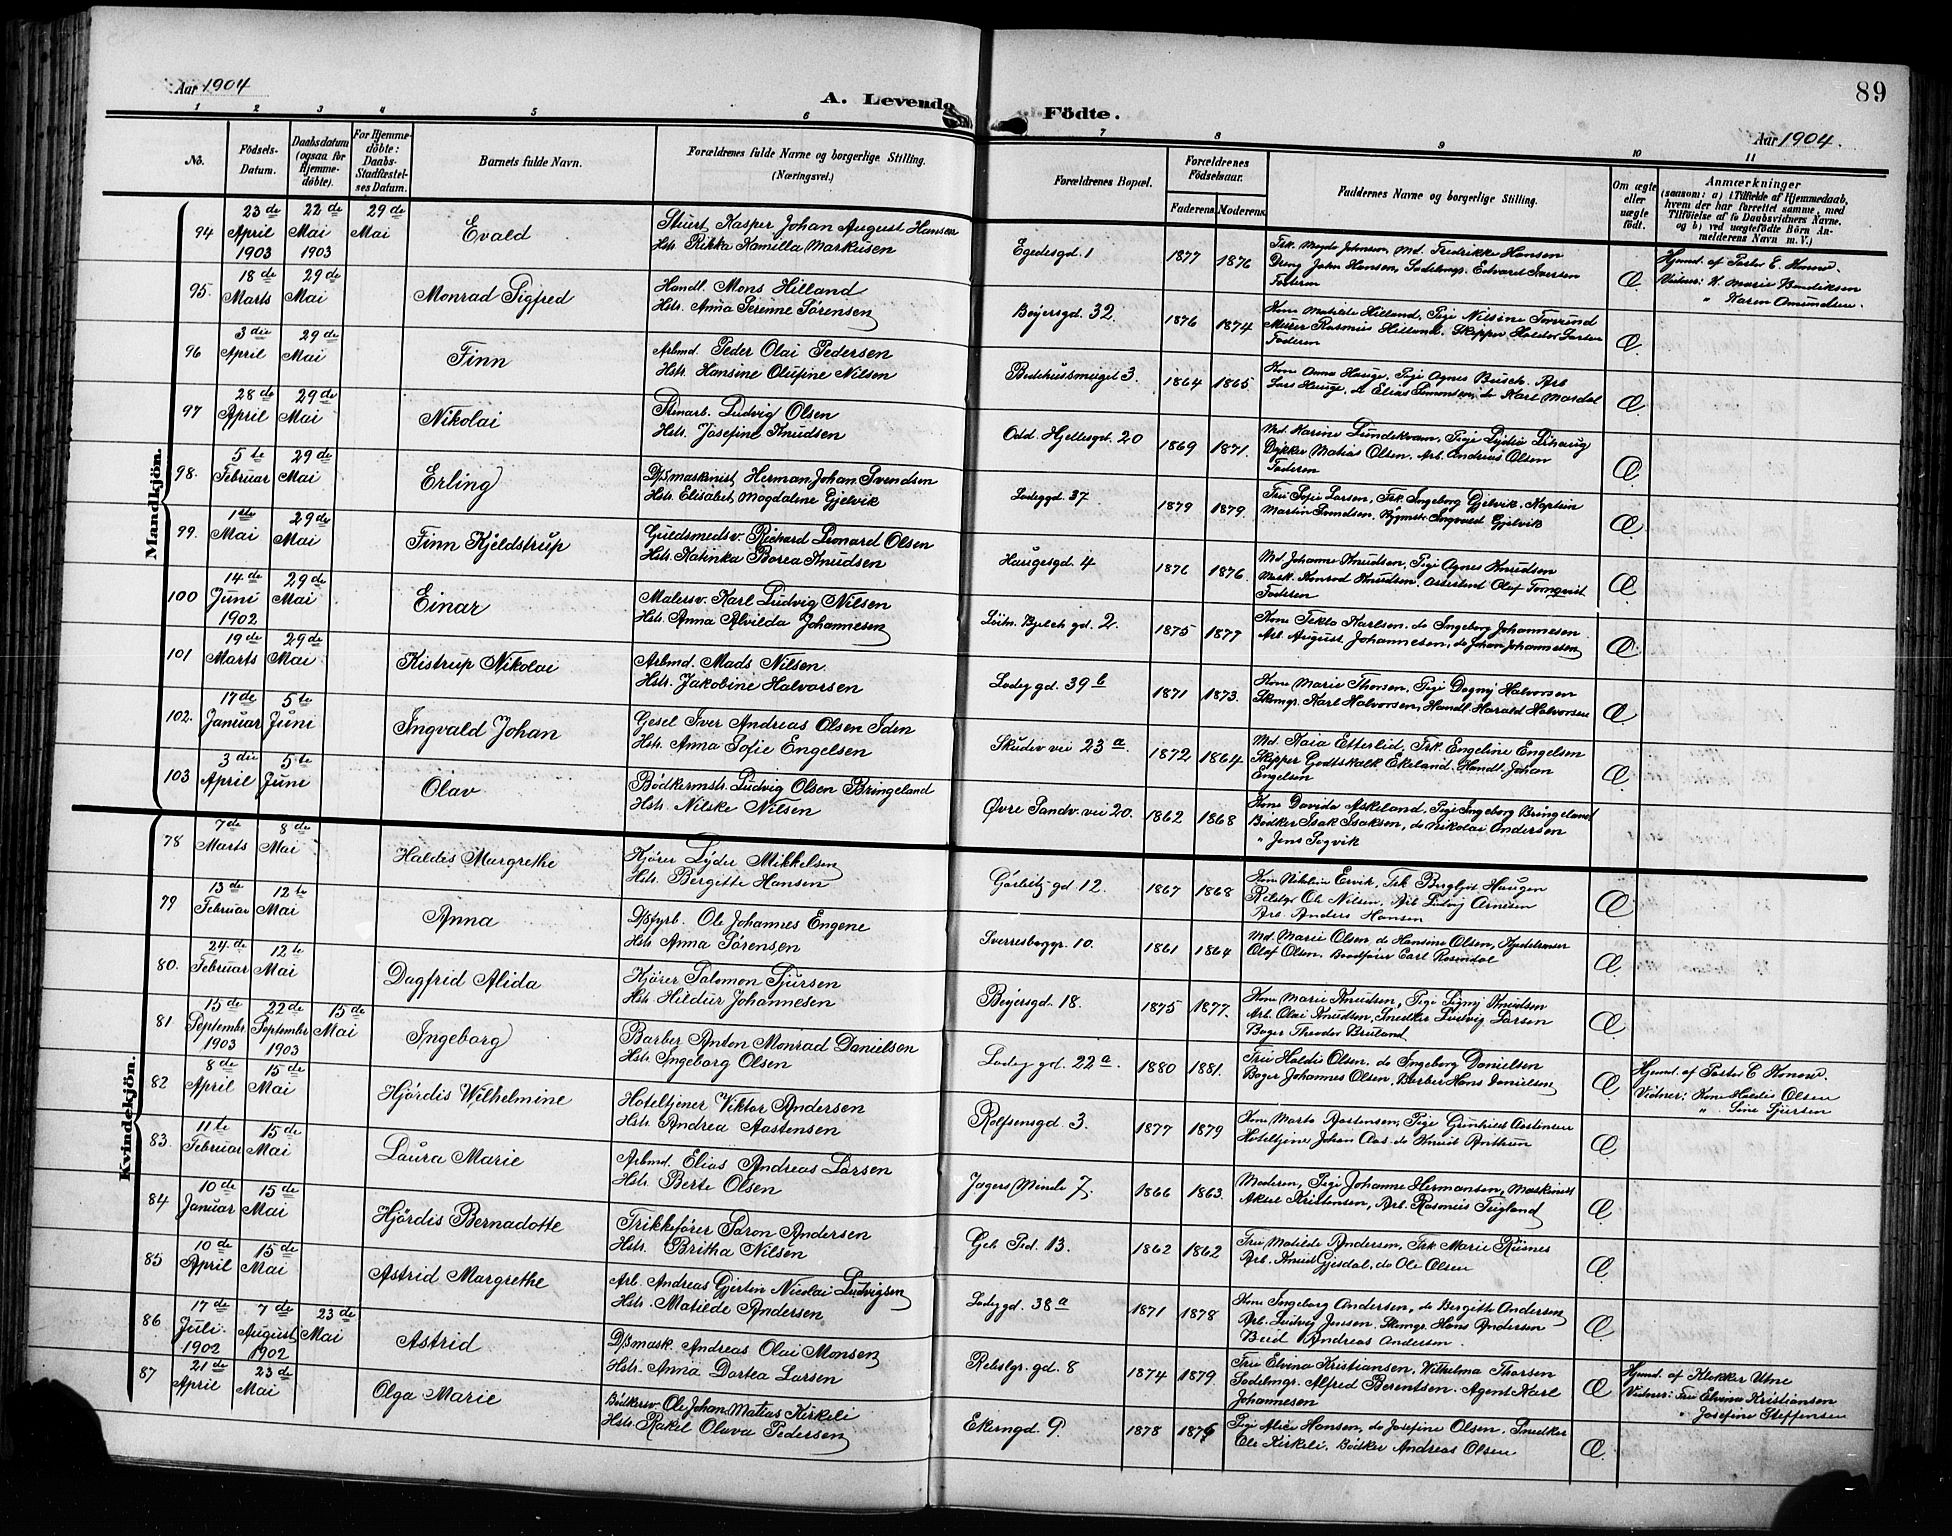 Aar 1904
A. Levende Födte.
89
Aar 1904.
1 2 3 4 5 6 7 8 9 10 11
No.
Födsels-Datum.
Daabsdatum (ogsaa for Hjemme-döbte).
For Hjemme-döbte: Daabs-Stadfæstel-ses Datum.
Barnets fulde Navn.
Forældrenes fulde Navne og borgerlige Stilling. (Næringsvei.)
Forældrenes Bopæl.
Forældrenes Födselsaar.
Faderens. Moderens.
Faddernes Navne og borgerlige Stilling.
Om ægte eller uægte födt.
Anmærkninger
(saasom: a) i Tilfælde af Hjemmedaab, hvem der har forrettet samme, med Tilföielse af to Daabsvidners Navne, og b) ved uægtefödte Börn An-melderens Navn m. V.)
Mandkjön.
94 23de April 1903 22de Mai 1903 29de Mai Evald Stuert Kasper Johan August Hansen
Hstr. Rikka Kamilla Markusen Egedesgd. 1 1877 1876 Frk. Magda Johnsen, Md. Fredrikke Hansen
Dreng John Hansen, Sadelmgs. Edvard Iversen
Faderen Æ. Hjemd. af Pastor E. Konow.
Vidner: K. Marie Bendiksen
" Karen Amundsen.
95. 18de Marts 29de Mai Monrad Sigfred Handl. Mons Hilland
Hstr. Anna Serine Sörensen Beyersgd. 32 1876 1874 Kone Matilde Hilland, Pige Nilsine
Murer Rasmus Hilland, Skipper Halvor Larsen
Faderen Æ.
96 3die April 29de Mai Finn Arbmd. Peder Olai Pedersen
Hstr. Hansine Olufine Nilsen Bedehussmuget 3. 1864 1865 Kone Anna Hauge, Pige Agnes Busch. Arb
Lars Hauge, do Elias Simonsen, do Karl Mosdal Æ
97 28de April 29de Mai Nikolai Stenarb. Ludvig Olsen
Hstr. Josefine Knudsen Odd. Hjeltesgd. 20 1869 1871. Md. Karine Lundekvam, Pige Lydia
Dykker Matias Olsen, Arb. Andreas Olsen
Faderen Æ
98. 5te Februar 29de Mai Erling D/Smaskinist Herman Johan Svendsen
Hstr. Elisabet Magdalene Gjelvik Ladeggd. 37 1879 1879. Fru Sofie Larsen, Frk. Ingeborg Gjelvik, Kaptein
Martin Svendsen, Bygmstr. Ingvald Gjelvik Æ.
99. 1ste Mai 29de Mai Finn Kjeldstrup Guldsmedsv. Richard Leonard Olsen
Hstr. Katinka Borea Knudsen Haugesgd. 4 1876 1876. Md Johanne Knudsen, Pige Agnes Knudsen
Mask. Konrad Knudsen, Assistent Olaf Tornqvist
Faderen Æ.
100 14de Juni 1902 29de Mai Einar Malersv. Karl Ludvig Nilsen
Hstr. Anna Alvilda Johannesen Löitn. Bjelch gd. 2. 1875 1877 Kone Tekla Karlsen, do Ingeborg Johannesen.
Arb. August Johannesen, do Johan Johannesen Æ.
101 19de Marts 29de Mai Kistrup Nikolai Arbmd. Mads Nilsen
Hstr. Jakobine Halvorsen Ladeggd. 39 b 1871 1873. Kone Marie Thorsen, Pige Dagny Halvorsen
Skomgr. Karl Halvorsen, Handl Harald Halvorsen Æ
102. 17de Januar 5te Juni Ingvald Johan Gesel Iver Andreas Olsen Iden
Hstr. Anna Sofie Engelsen Skudev vei 23 a. 1872 1864 Md. Kaia Etterlid, Frk. Engeline Engelsen
Skipper Godtskalk Ekeland, Handl. Johan
Engelsen Æ
103 3die April 5te Juni Olav Bödkermstr. Ludvig Olsen Bringeland
Hstr. Nilske Nilsen Övre Sandv. vei 20. 1862 1868 Kone Davida Askeland, Pige Ingeborg Bringeland
Bödker Isak Isaksen, do Nikolai Andersen
" Jens Sogvik
Kvindekjön.
78 7de Marts 8de Mai Haldis Margrethe Kjörer Lyder Mikkelsen
Hstr. Bergitte Hansen Görbitz gd 12. 1867 1868 Kone Nikoline Ervik, Frk Bergljot Haugen
Rebslgr Ole Nilsen, Arb Ludvig Arnesen
Arb. Anders Hansen Æ
79 13de Februar 12te Mai Anna D/Sfyrb. Ole Johannes Engene
Hstr. Anna Sörensen Sverresbaggr. 10. 1861 1864 Md. Marie Olsen, do Hansine Olsen,
Olaf Olsen. Carl Rosendal Æ.
80. 24de Februar 12te Mai Dagfrid Alida Kjörer Salomon Sjursen
Hstr. Hildur Johannesen Beyersgd. 18. 1875 1877. Kone Marie Knudsen, Pige Signy Knudsen
Arb. Olai Knudsen, Snedker Ludvig Larsen
Bager Theodor Æ
81 15de Septembr 1903 22de Septembr 1903 15de Mai Ingeborg Barber Anton Monrad Danielsen
Hstr. Ingeborg Olsen Ladeg gd. 22 a 1880 1881. Fru Haldis Olsen, do Ingeborg Danielsen
Bager Johannes Olsen, Barber Hans Danielsen Æ Hjemd. af Pastor E Konow.
Vidner: Kone Haldis Olsen
" Line Sjursen
82 8de April 15de Mai Hjördis Wilhelmine Hoteltjener Viktor Andersen
Hstr. Andrea Aastensen Rolfsensgd 3. 1877 1879 Kone Marta Aastensen, Pige Gunhild Aastensen
Hoteltjene Johan Aas. do Knut Æ
83. 11te Februar 15de Mai Laura Marie Arbmd. Elias Andreas Larsen
Hstr. Berte Olsen Jægers Minde 7. 1866 1863. Moderen, Pige Johanne Hermansen, Maskinist
Aksel Kristensen, Arb. Rasmus Teigland Æ.
84 10de Januar 15de Mai Hjördis Bernadotte Trikkeförer Saron Andersen
Hstr. Britha Nilsen Geb Ped. 13. 1862 1862 Fru Matilde Andersen, Frk Marie Risnes
Arb. Knud Gjesdal, do Ole Olsen Æ
85 10de April 15de Mai Astrid Margrethe Arb. Andreas Gjertin Nicolai Ludvigsen
Hstr. Matilde Andersen Ladeggd. 38 a 1871 1878 Kone Ingeborg Andersen, do Bergitte Andersen
Arb. Ludvig Jensen. Skomgr. Hans Andersen
Bud Andreas Andersen. Æ.
86 17de Juli. 1902 7de August 1902 23de Mai Astrid D/Smask. Andreas Olai Monsen
Hstr. Anna Dortea Larsen Rebslgr. gd. 8 1874 1879. Fru Elvina Kristiansen, Wilhelma Thorsen
Sadelmgr. Alfred Berentsen. Agent Karl
Johannesen Æ Hjemd. af Klokker Utne
Vidner: Fru Elvina Kristiansen
" Josefine Steffensen
87 21de April 23de Mai Olga Marie Bödkersv. Ole Johan Matias Kirkeli
Hstr. Rakel Olava Pedersen Ekerngd. 9. 1878 1876 Pige Alice Hansen, do Josefine Olsen, Snedker
Ole Kirkeli. Bödker Andreas Olsen Æ.